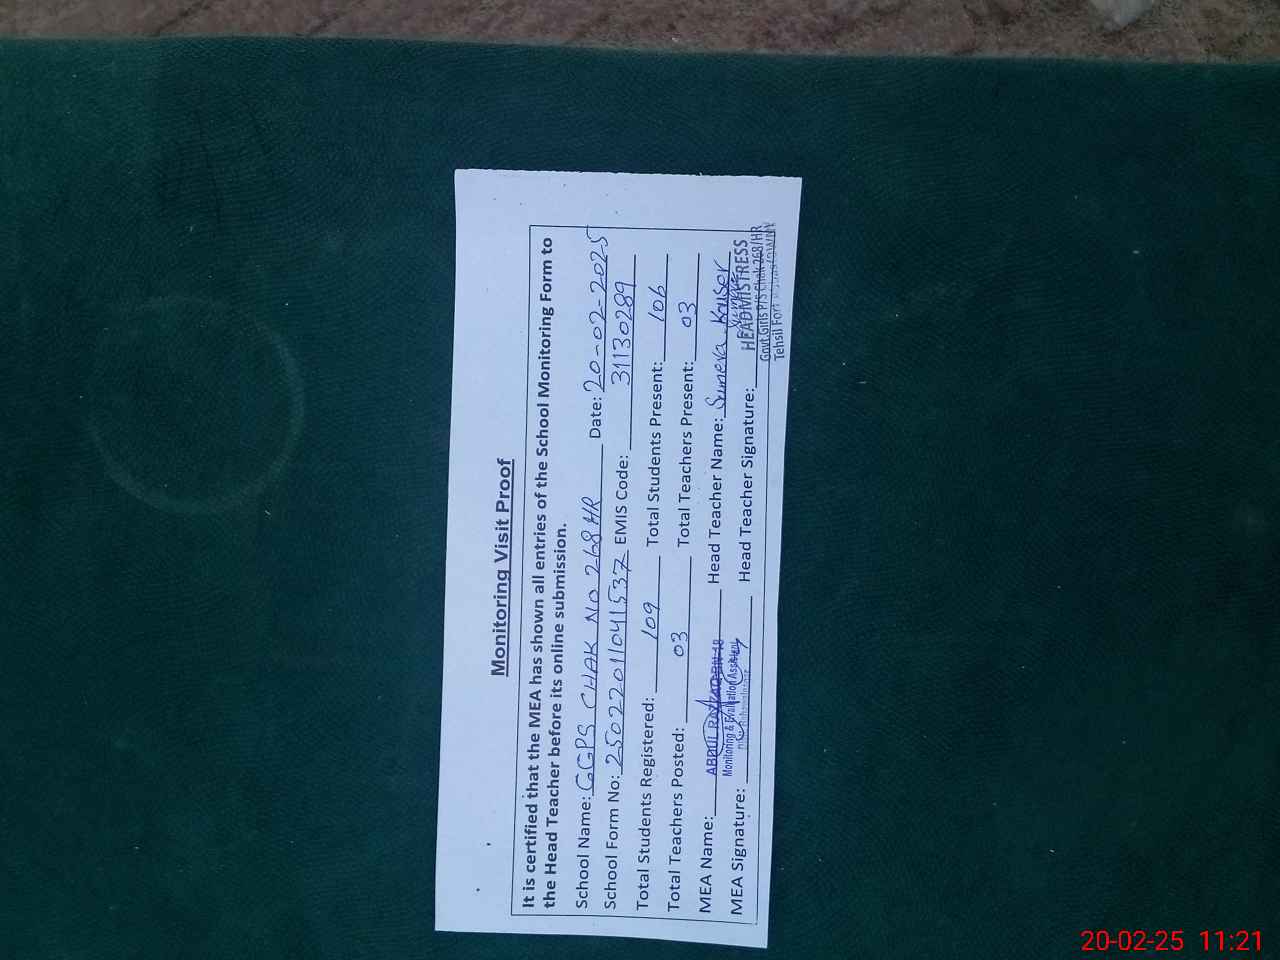 Monitoring Visit Proof
It is certified that the MEA has shown all entries of the School Monitoring Form to
the Head Teacher before its online submission.
School Name: GGPS CHAK No 268 HR Date: 20-02-2025
School Form No: 25022011041537 EMIS Code: 31130289
Total Students Registered: 109 Total Students Present: 106
Total Teachers Posted: 03 Total Teachers Present: 03
MEA Name: ABDUL RAZZAQ Head Teacher Name: Sumera Kousor
Monitoring & Evaluation Assistant
MEA Signature: Head Teacher Signature:
HEADMISTRESS
Govt.Girls P/S Chak 268/HR
Tehsil Fort
20-02-25 11:21